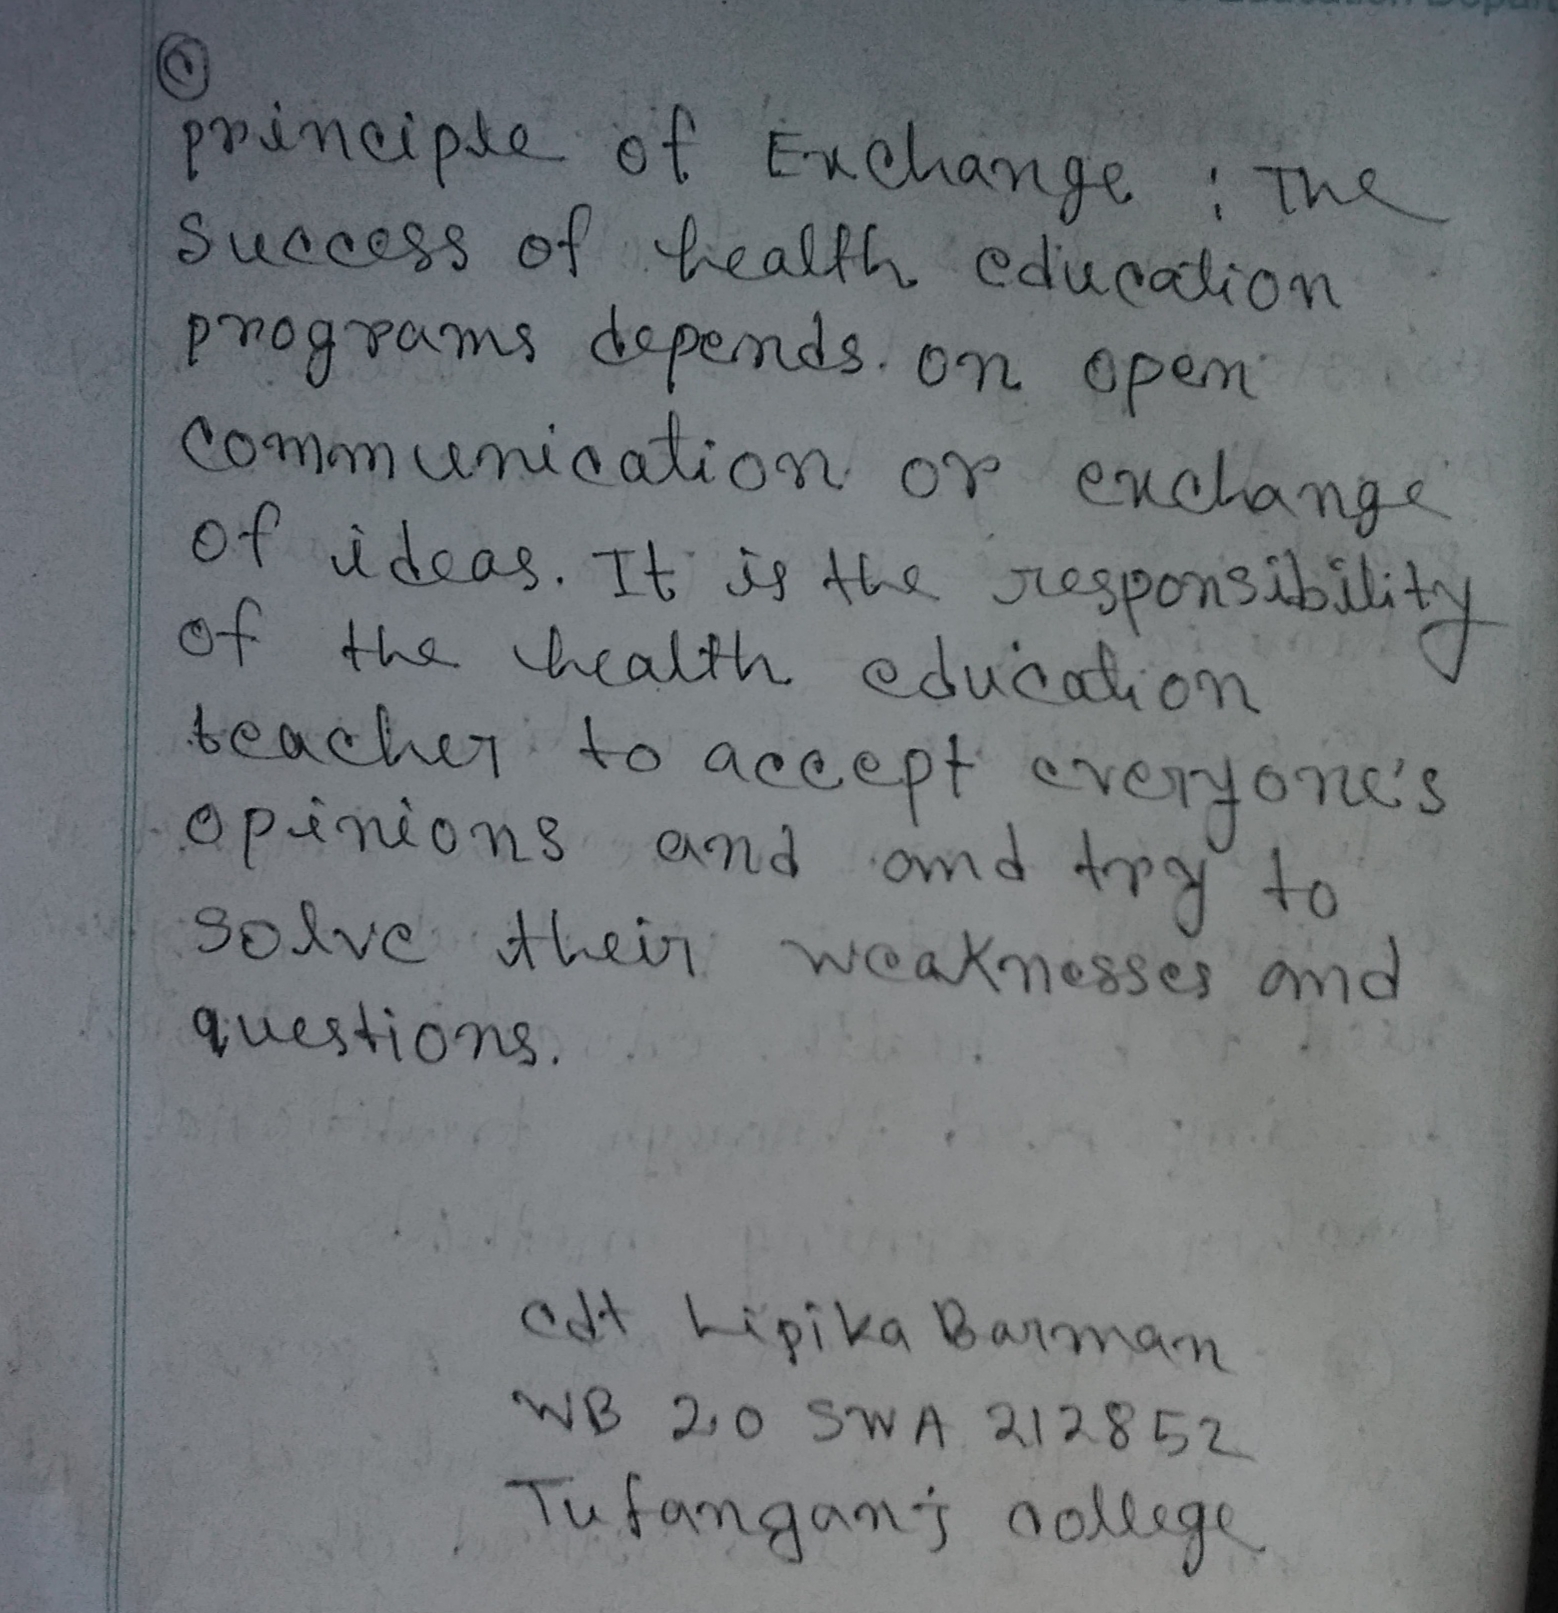 principle of Exchange : The
Success of health education
programs depends. on open
communication or exchange
of ideas. It is the responsibility
of the health education
teacher to accept everyone's
opinions and and try to
solve their weaknesses and
questions.
cdt Lipika Barman
WB 20 SWA 212852
Tufanganj college